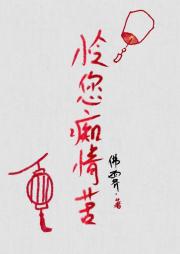 怜您痴情苦
佛霁·著